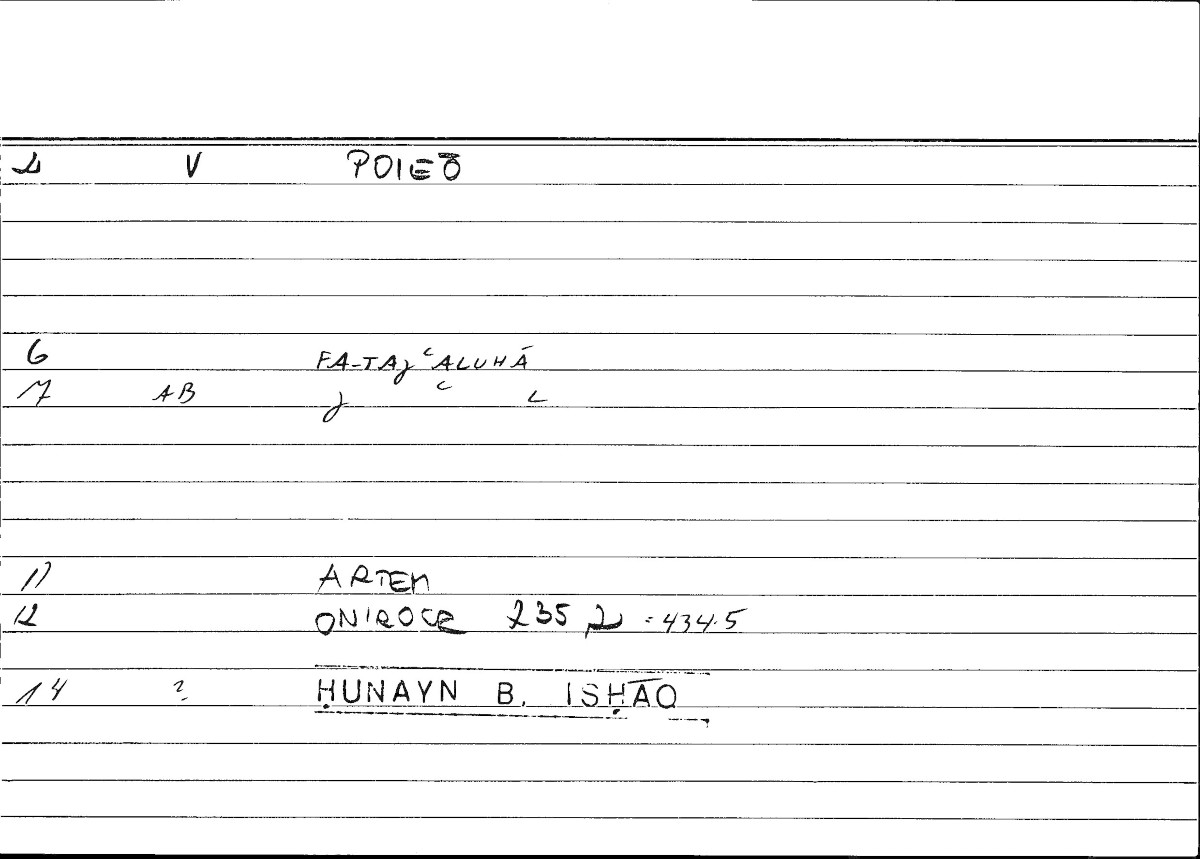 1 V POIEŌ
6 FA-TAJʿALUHĀ
7 AB J ʿ L
11 ARTEM
12 ONIROCR 235 2 : 434.5
14 ? ḤUNAYN B. ISḤĀQ